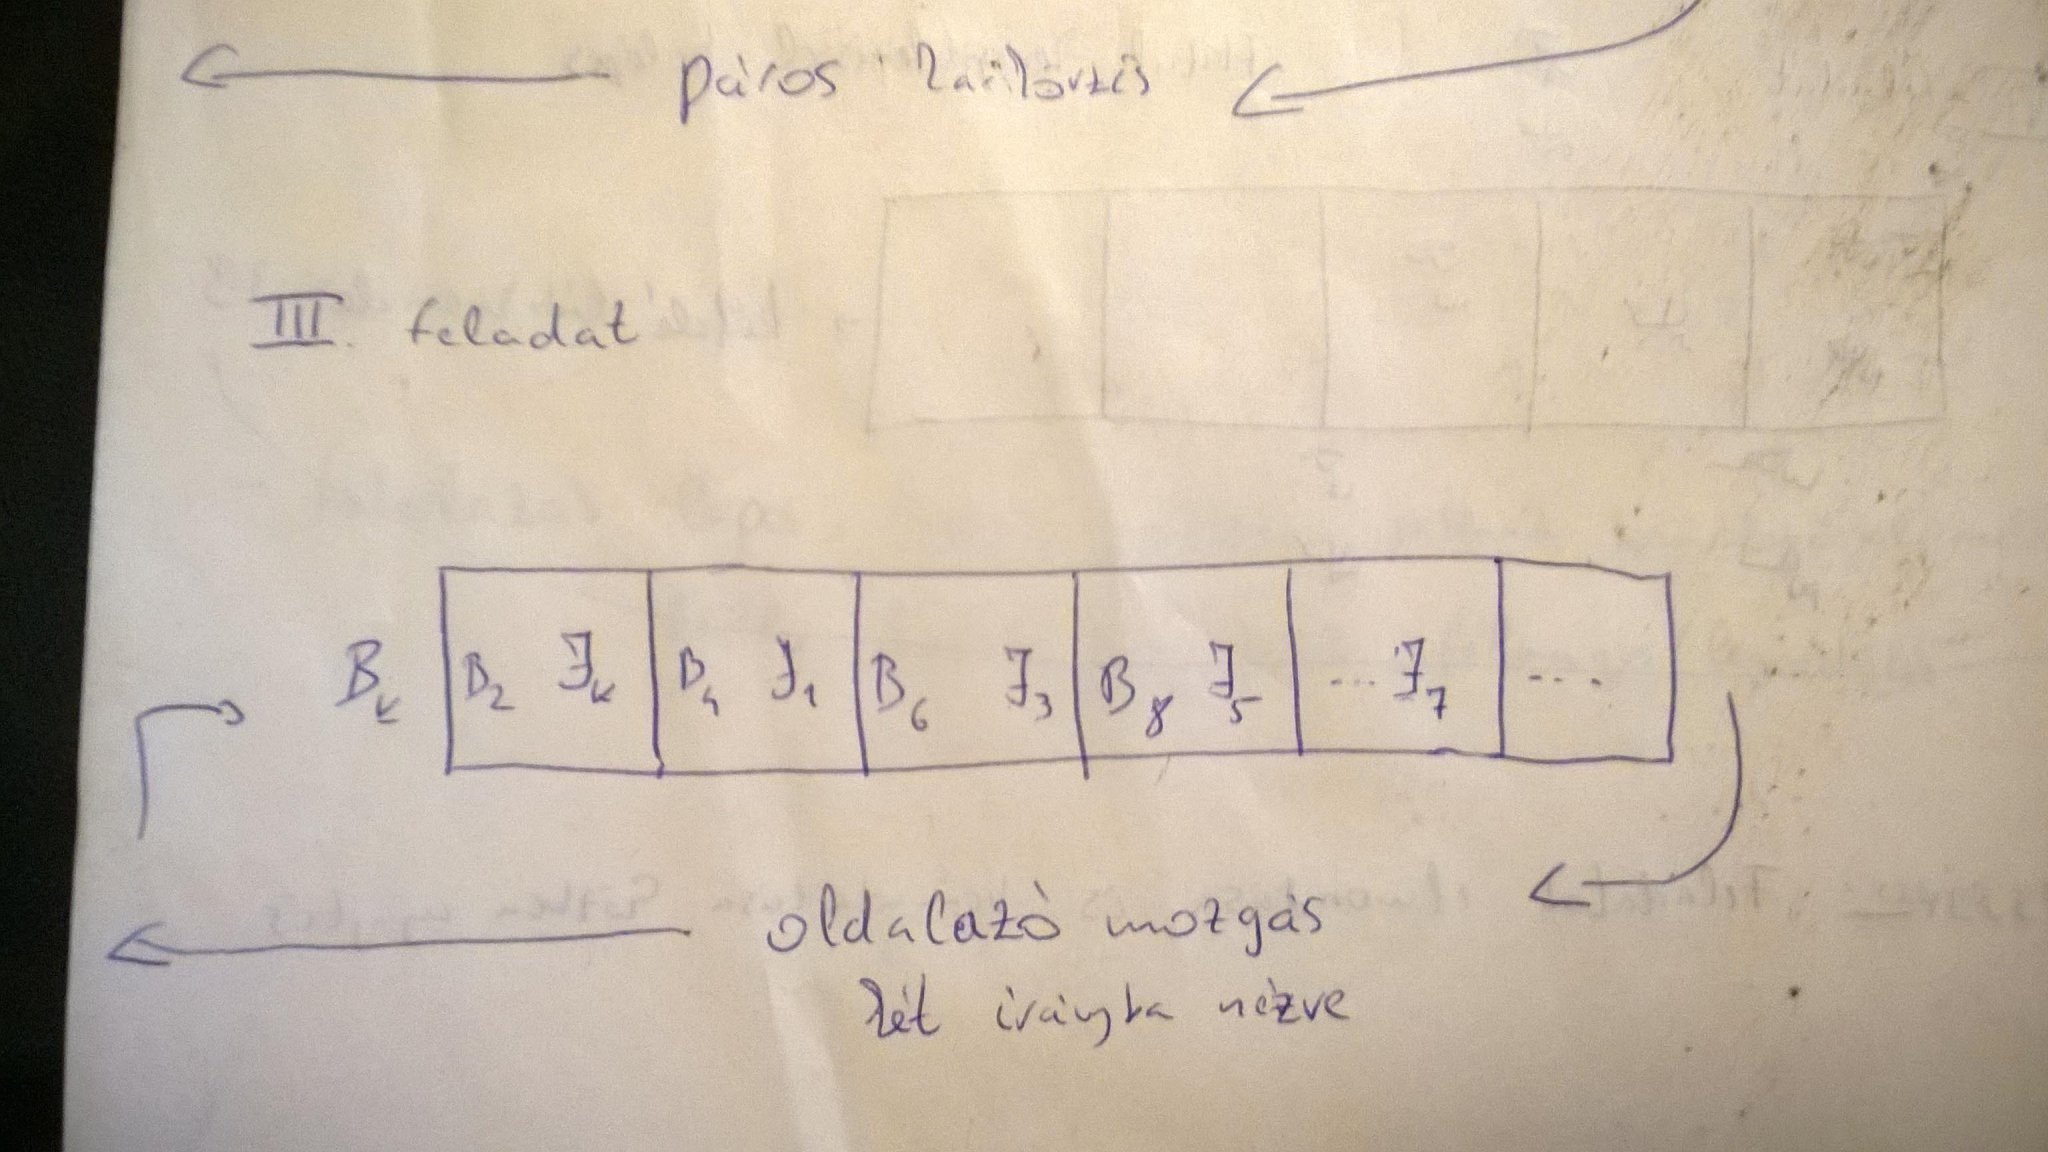 páros
III. feladat
Bk B2 Jk B4 J1 B6 J3 B8 J5 ... J7 ...
oldalazó mozgás
két irányba nézve